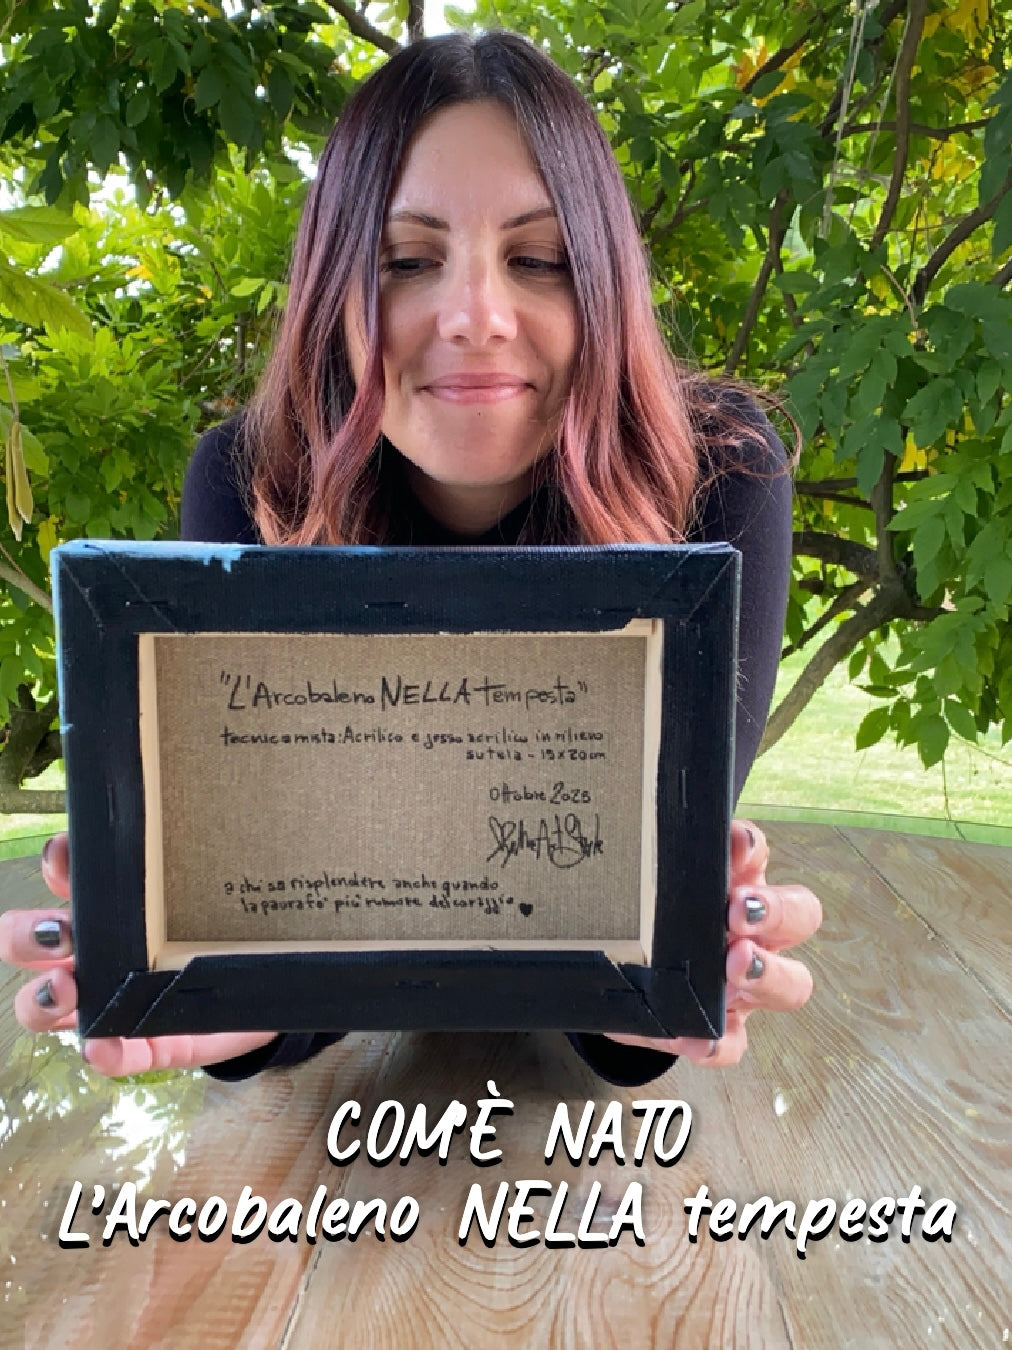 "L'Arcobaleno NELLA tempesta"
tecnica mista: Acrilico e gesso acrilico in rilievo
su tela - 15x20cm
Ottobre 2025
a chi sa risplendere anche quando
la paura fa più rumore del coraggio ♥
COM'È NATO
L'Arcobaleno NELLA tempesta